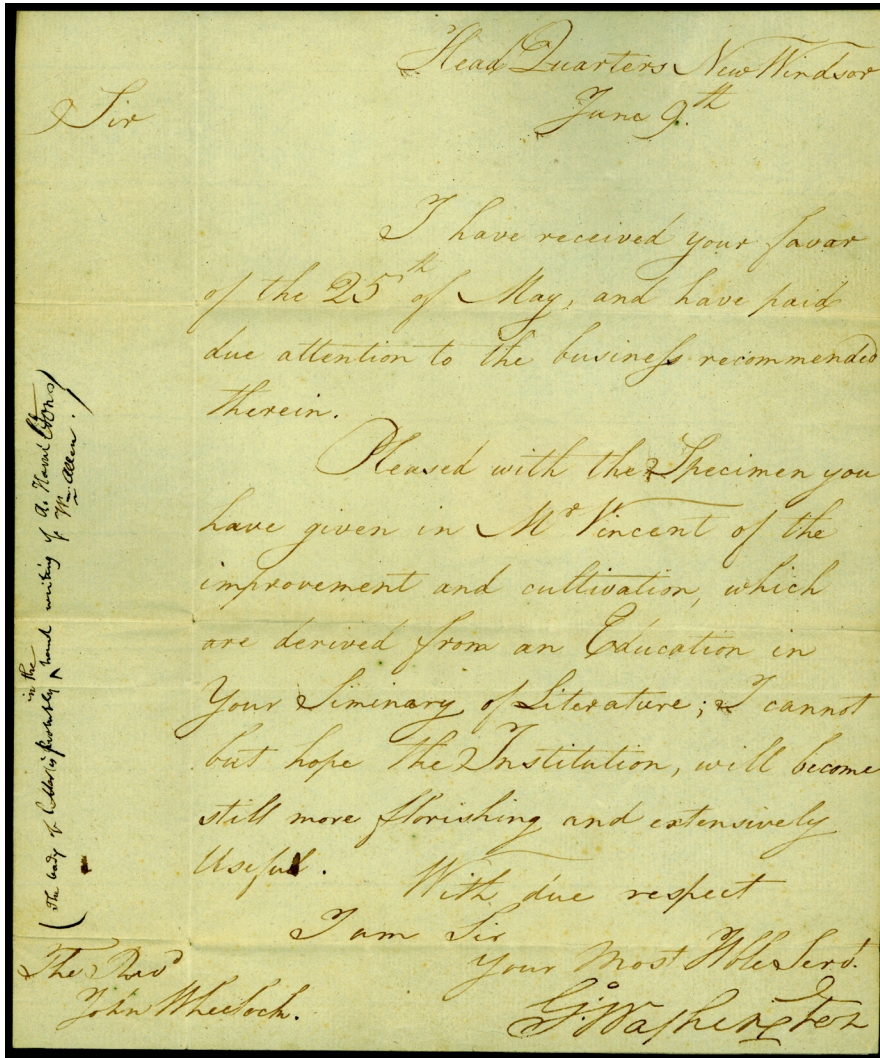 Head Quarters New Windsor
June 9.th
Sir
I have received your favor
of the 25th of May, and have paid
due attention to the business recommended
therein.
Pleased with the Specimen you
have given in Mr Vincent of the
improvement and cultivation, which
are derived from an Education in
Your Siminary of Literature; I cannot
but hope the Institution, will become
still more florishing and extensively
Useful.
With due respect
I am Sir
Your Most Hble Servt.
Go: Washington
The Revd
John Wheelock.
(The body of letter is probably in the hand writing of A. Hamiltons
Wm Allen.)